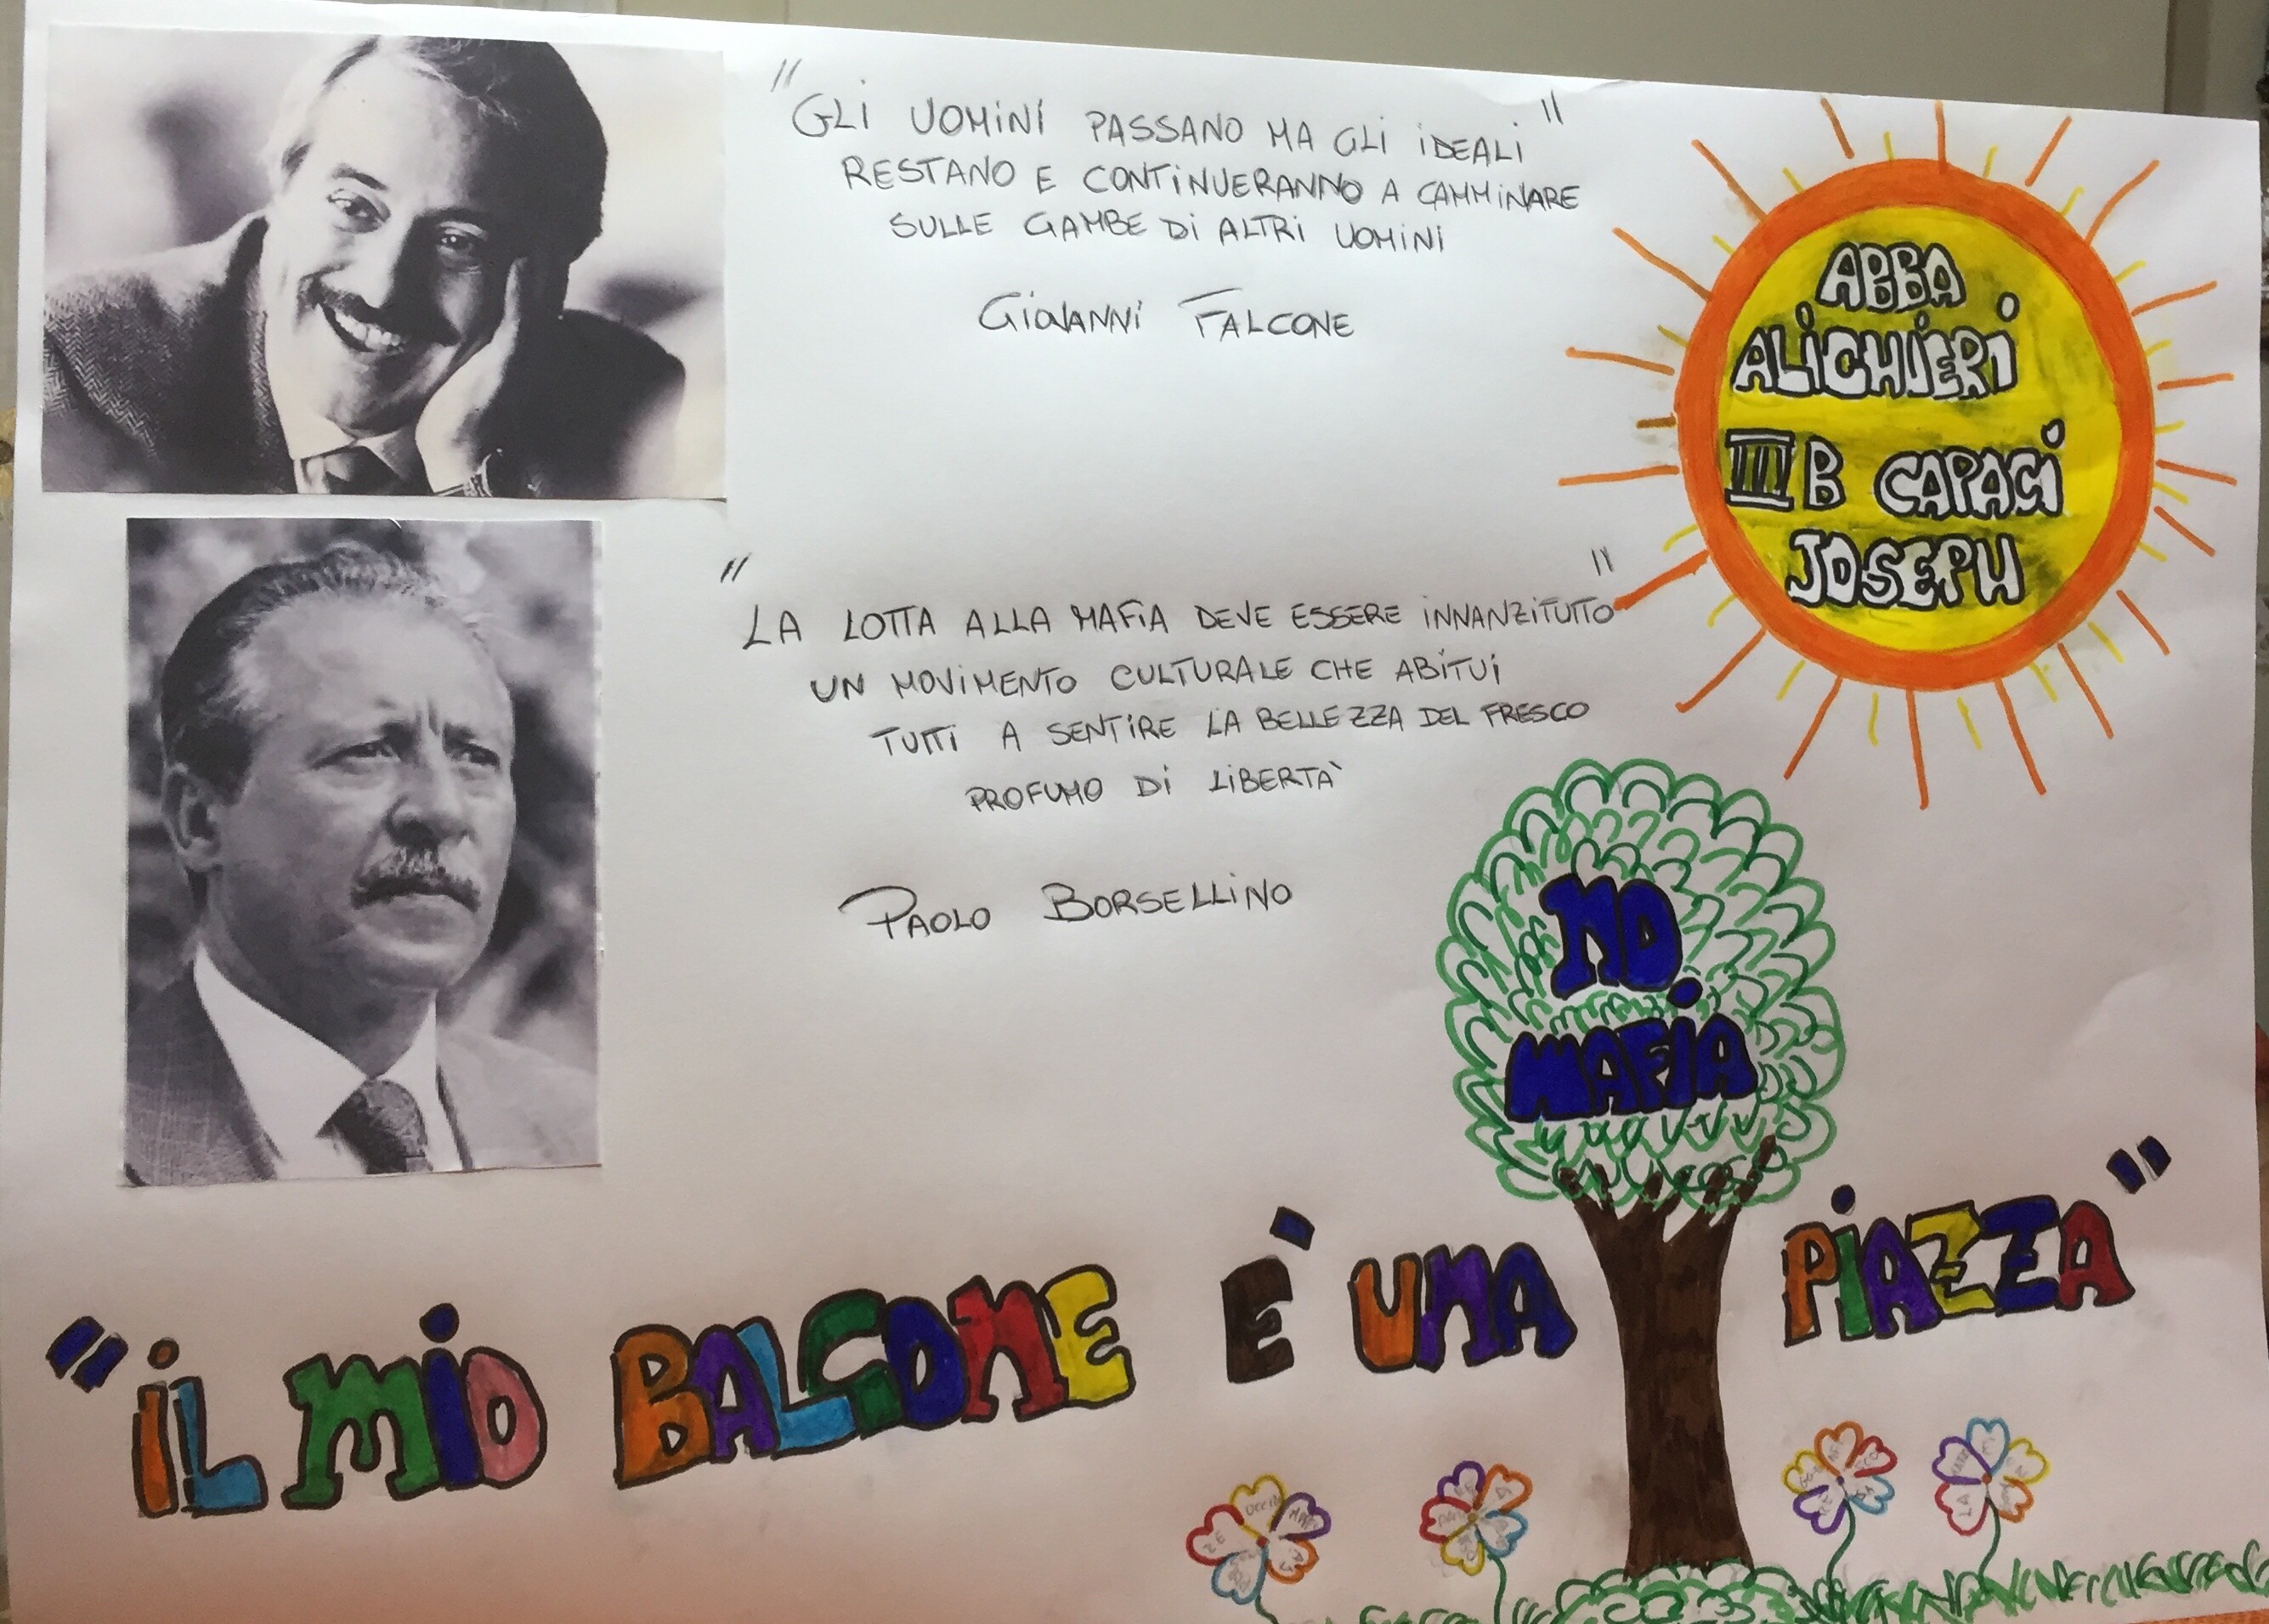 "GLI UOMINI PASSANO MA GLI IDEALI"
RESTANO E CONTINUERANNO A CAMMINARE
SULLE GAMBE DI ALTRI UOMINI
GIOVANNI FALCONE
ABBA
ALIGHIERI
III B CAPACI
JOSEPH
"LA LOTTA ALLA MAFIA DEVE ESSERE INNANZITUTTO"
UN MOVIMENTO CULTURALE CHE ABITUI
TUTTI A SENTIRE LA BELLEZZA DEL FRESCO
PROFUMO DI LIBERTA'
PAOLO BORSELLINO
NO
MAFIA
"IL MIO BALCONE E' UNA PIAZZA"